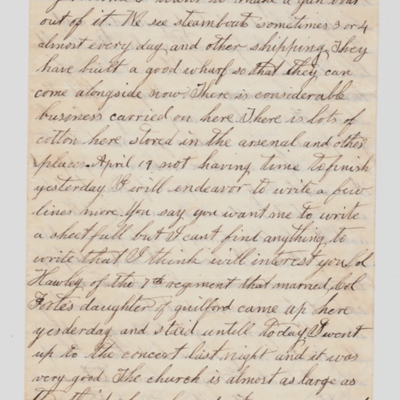 out of it. We see steamboat sometimes 3 or 4
almost every day and other shipping They
have built a good wharf so that they can
come alongside now There is considerable
business carried on here There is lots of
cotton here stored in the arsenal and other
places. April 19 not having time to finish
yesterday I will endeavor to write a few
lines more. You say you want me to write
a sheetfull but I cant find anything to
write that I think will interest you. Col
Hawley of the 7th regment that married Col
Footes daughter of guilford came up here
yesderday and staid untell to day I went
up to the concert last night and it was
very good The church is almost as large as